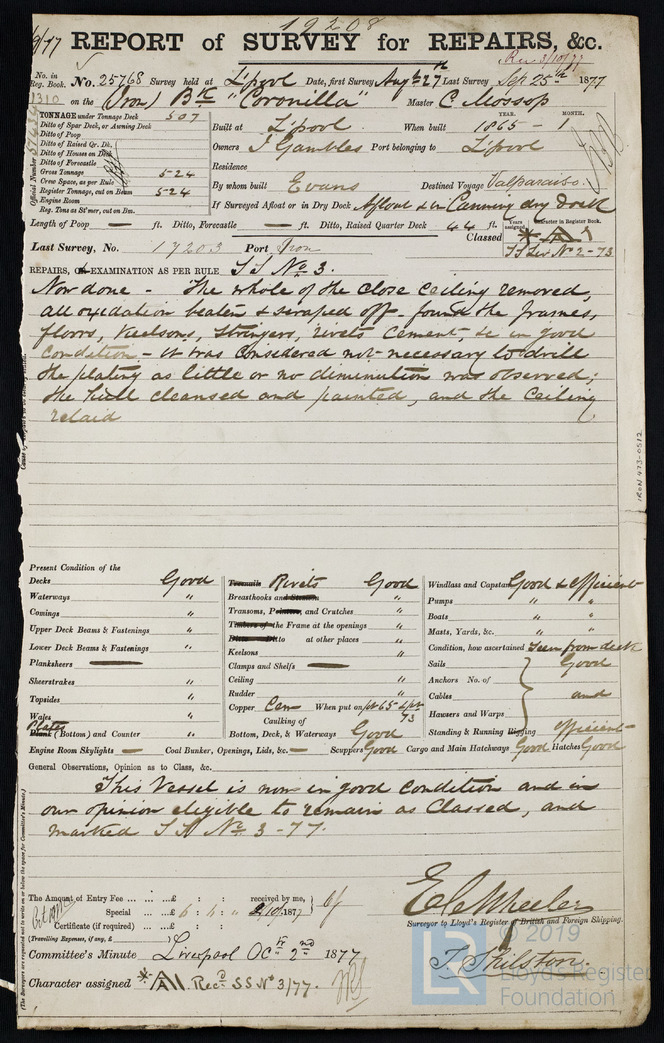 19208
9/77 REPORT of SURVEY for REPAIRS, &c.
Rec 3/10/77
No. in Reg. Book. No. 25768 Survey held at L'pool Date, first Survey Augt 27th Last Survey Sep 25th 1877
1310 on the (Iron) Bk "Coronilla" Master C Mossop
TONNAGE under Tonnage Deck 507
Ditto of Spar Deck, or Awning Deck
Ditto of Poop
Ditto of Raised Qr. Dk.
Ditto of Houses on Deck
Ditto of Forecastle
Gross Tonnage 524
Crew Space, as per Rule
Register Tonnage, cut on Beam 524
Engine Room
Reg. Tons as St'mer, cut on Bm.
Official Number
YEAR. MONTH.
Built at L'pool When built 1865 - 1
Owners J Gambles Port belonging to L'pool
Residence
By whom built Evans Destined Voyage Valparaiso.
If Surveyed Afloat or in Dry Dock Afloat & in Canning dry Dock
Length of Poop — ft. Ditto, Forecastle — ft. Ditto, Raised Quarter Deck 44 ft.
Years assigned Character in Register Book.
Classed A1
SS Liv No 2-73
Last Survey, No. 17203 Port Iron
REPAIRS, OR EXAMINATION AS PER RULE SS No 3.
Now done - The whole of the close ceiling removed,
all oxidation beaten & scraped off - found the frames,
floors, keelsons, stringers, rivets cement, &c in good
condition - it was considered not necessary to drill
the plating as little or no diminution was observed;
the hull cleansed and painted, and the ceiling
relaid
IRON 473-0512
Present Condition of the
Decks Good
Waterways "
Comings "
Upper Deck Beams & Fastenings "
Lower Deck Beams & Fastenings "
Planksheers —
Sheerstrakes "
Topsides "
Wales "
Plates
Plank (Bottom) and Counter "
Treenails Rivets Good
Breasthooks and Stemson "
Transoms, Pointers, and Crutches "
Timbers of the Frame at the openings "
Ditto Ditto at other places "
Keelsons "
Clamps and Shelfs —
Ceiling "
Rudder "
Copper Cem When put on pt 65 & pt 73
Caulking of
Bottom, Deck, & Waterways Good
Windlass and Capstan Good & efficient
Pumps " "
Boats " "
Masts, Yards, &c. " "
Condition, how ascertained Seen from deck
Sails Good
Anchors No. of
Cables and
Hawsers and Warps
Standing & Running Rigging efficient
Engine Room Skylights — Coal Bunker, Openings, Lids, &c. — Scuppers Good Cargo and Main Hatchways Good Hatches Good
General Observations, Opinion as to Class, &c.
This Vessel is now in good condition and in
our opinion eligible to remain as Classed, and
marked SS No 3-77.
(The Surveyors are requested not to write on or below the space for Committee's Minute.)
The Amount of Entry Fee ... ... £ : : received by me,
Special ... ... £ 6 : 6 : " 2/10/1877
Certificate (if required) ... £ : :
(Travelling Expenses, if any, £ )
E C Wheeler
Surveyor to Lloyd's Register of British and Foreign Shipping.
T. Shilston.
Committee's Minute Liverpool Octr 2nd 1877
Character assigned A1 Recd SS No 3/77.
LR © 2019
Lloyds Register
Foundation